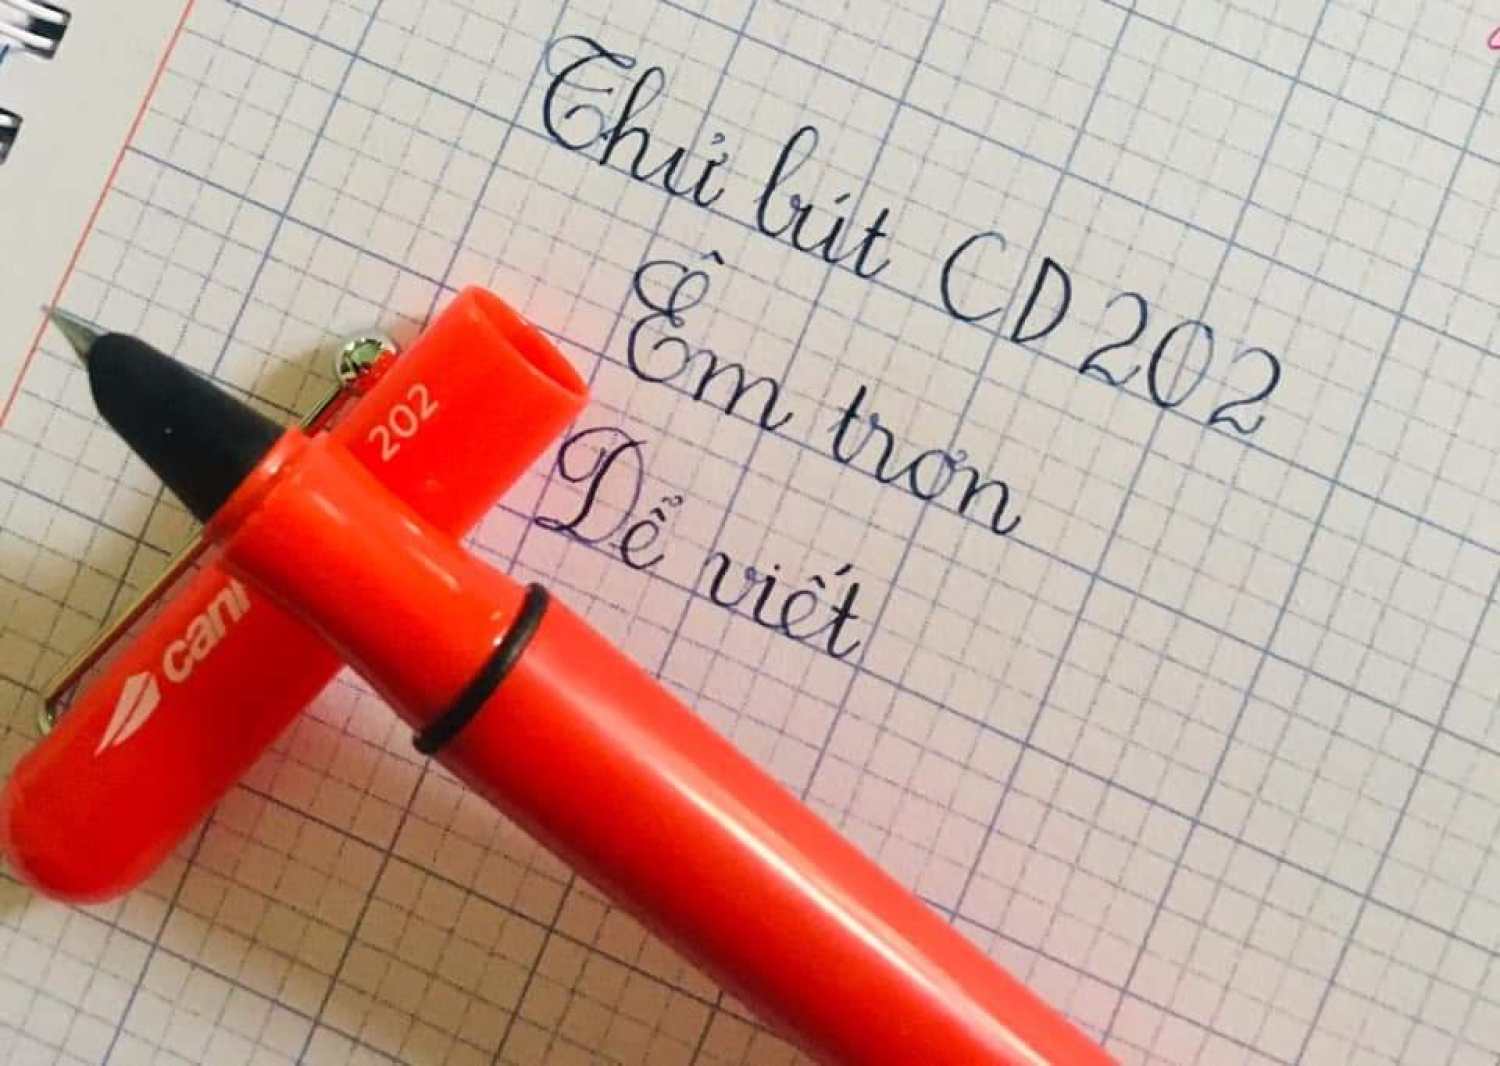 Thử bút CD202
Êm trơn
Dể viết
202
cani